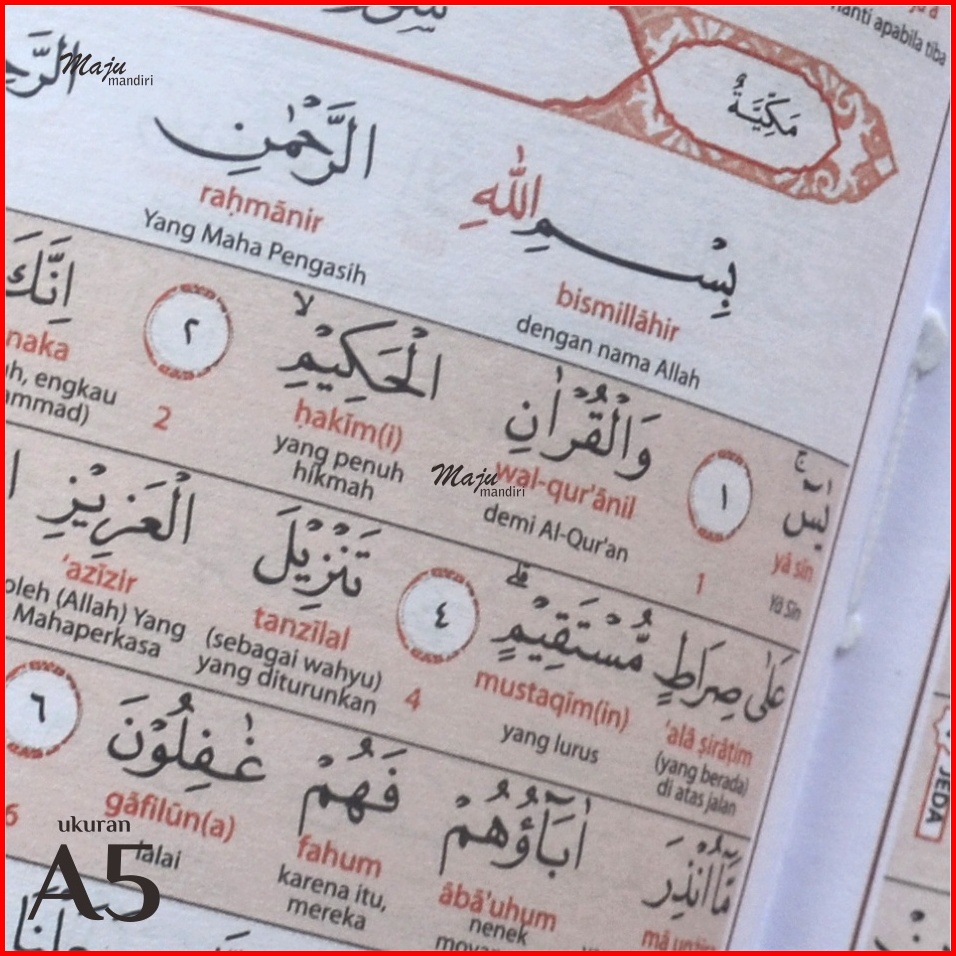 مَكِّيَّةٌ
nanti apabila tiba
Maju
mandiri
بِسْمِ اللّٰهِ الرَّحْمٰنِ
bismillāhir raḥmānir
dengan nama Allah Yang Maha Pengasih
يٰسۤ ۚ ١ وَالْقُرْاٰنِ الْحَكِيْمِۙ ٢ اِنَّكَ
yā sīn 1 wal-qur'ānil ḥakīm(i) 2 naka
Yā Sīn demi Al-Qur'an yang penuh hikmah engkau
Maju
mandiri
عَلٰى صِرَاطٍ مُّسْتَقِيْمٍۗ ٤ تَنْزِيْلَ الْعَزِيْزِ
'alā ṣirāṭim mustaqīm(in) 4 tanzīlal 'azīzir
(yang berada) di atas jalan yang lurus (sebagai wahyu) yang diturunkan oleh (Allah) Yang Mahaperkasa
مَّآ اُنْذِرَ اٰبَاۤؤُهُمْ فَهُمْ غٰفِلُوْنَ ٦
mā ābā'uhum fahum gāfilūn(a) 6
nenek karena itu, mereka lalai
JEDA
ukuran
A5